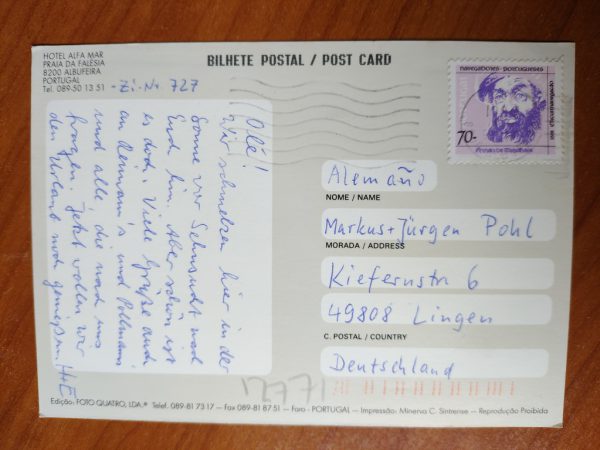 HOTEL ALFA MAR
PRAIA DA FALÉSIA
8200 ALBUFEIRA
PORTUGAL
Tel. 089-50 13 51
Zi.-Nr. 727
BILHETE POSTAL / POST CARD
navegadores portugueses
70-
Fernão de Magalhães
Olé!
Wir schmelzen hier in der
Sonne vor Sehnsucht nach
Euch hin. Aber schön ist
es doch. Viele Grüße auch
an Hermann's und Pollmann's
und alle die nach uns
fragen. Jetzt wollen wir
den Urlaub noch genießen. H+E
Alemaño
NOME / NAME
Markus + Jürgen Pohl
MORADA / ADDRESS
Kiefernstr 6
49808 Lingen
C. POSTAL / COUNTRY
Deutschland
12771
Edição: FOTO QUATRO, LDA.® Telef. 089-81 73 17 – Fax 089-81 87 51 – Faro - PORTUGAL – Impressão: Minerva C. Sintrense – Reprodução Proibida